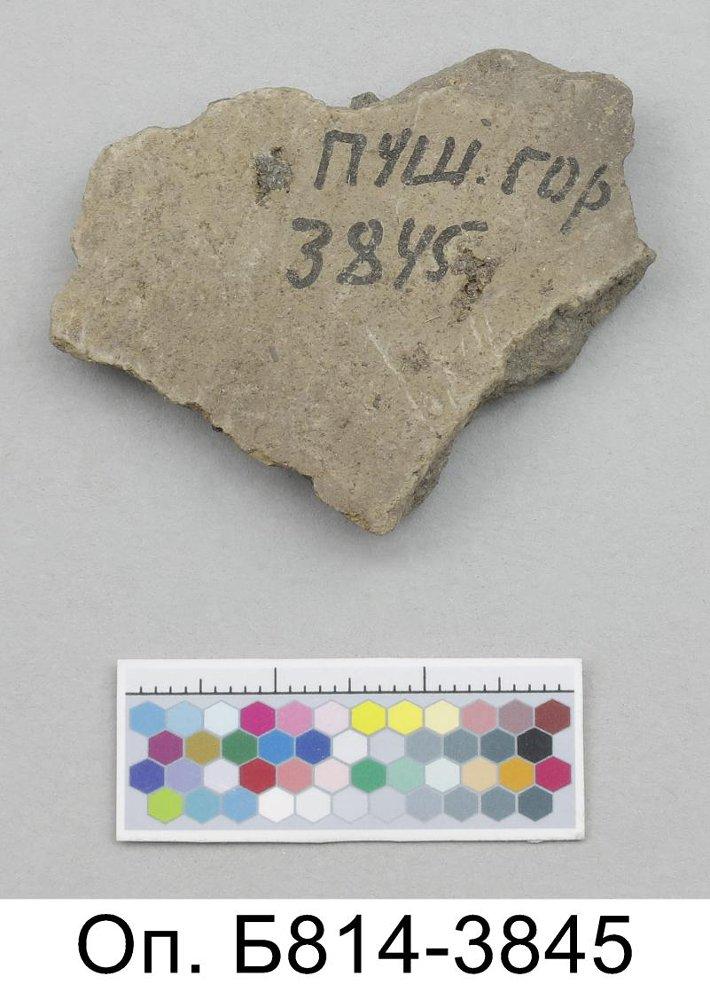 ПУШ. ГОР
3845
Оп. Б814-3845